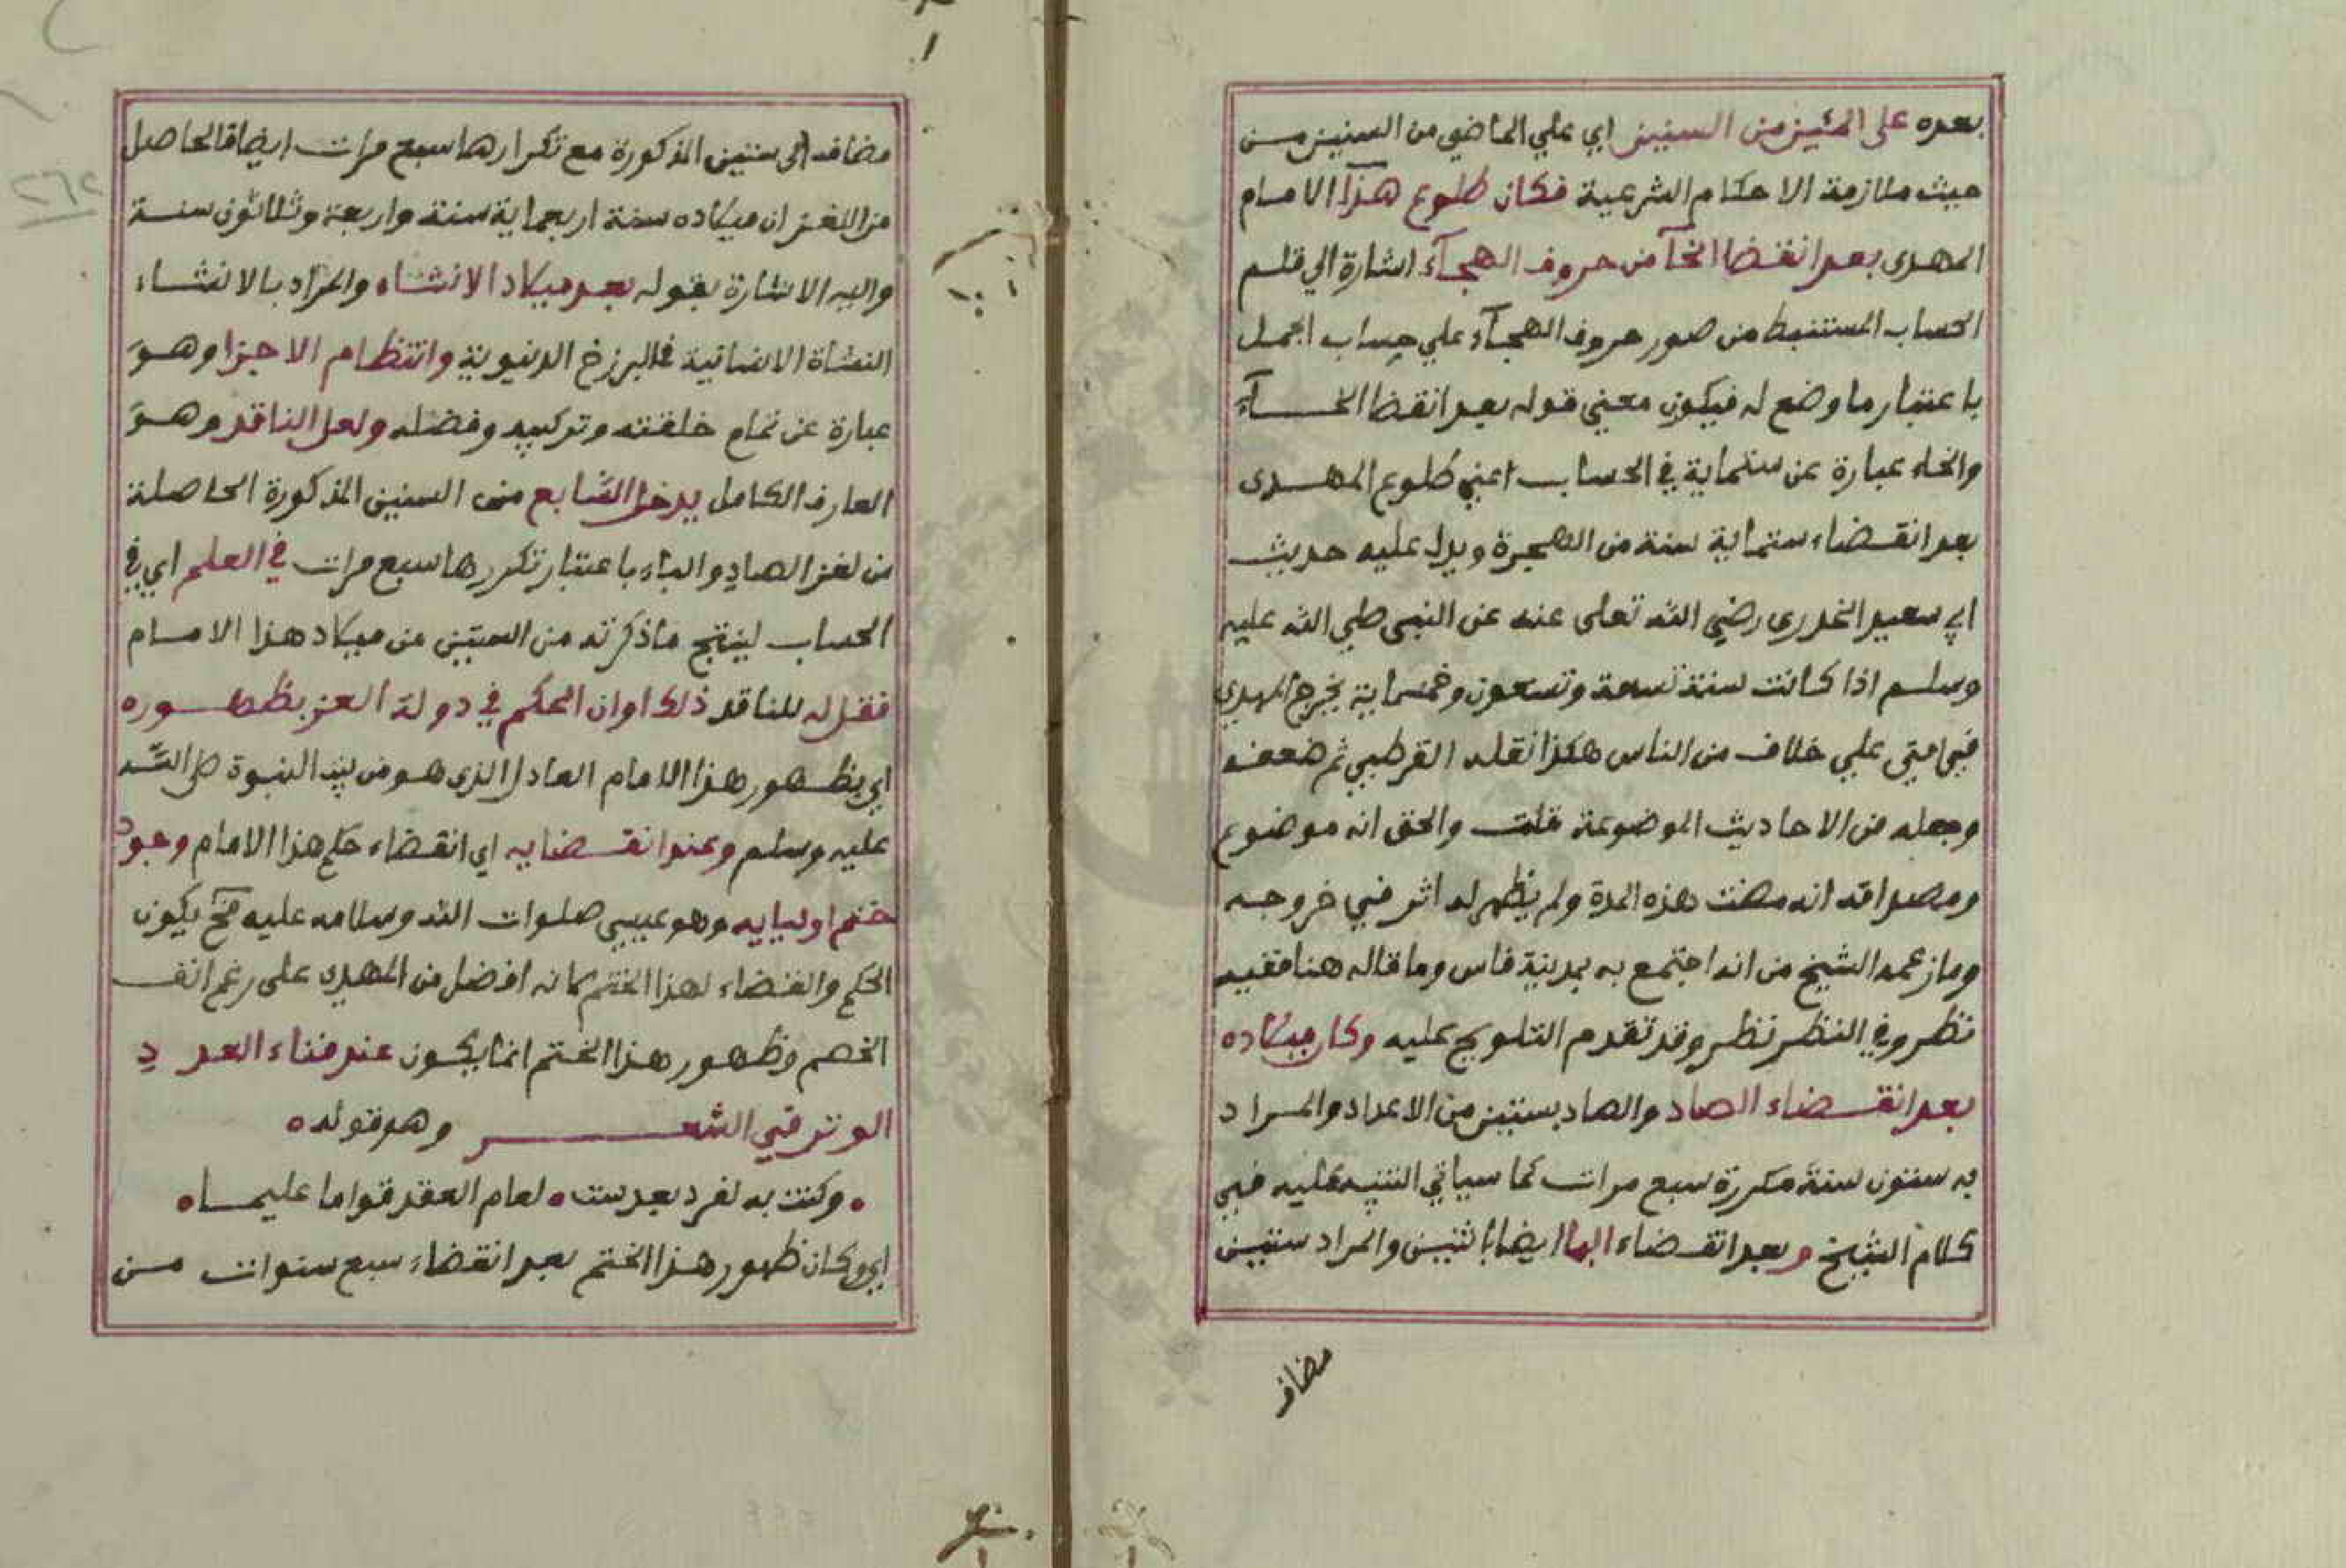 بعده على المئين من السنين اي علي الماضي من السنين من
حيث ملازمة الاحكام الشرعية فكان طلوع هذا الامام
المهدى بعد انقضا الخآ من حروف الهجآء اشارة الي قلم
الحساب المستنبط من صور حروف الهجآء علي حساب الجمل
باعتبار ما وضع له فيكون معني قوله بعد انقضا الخـــآء
والخاء عبارة عن ستماية في الحساب اعني طلوع المهدى
بعد انقضاء ستماية سنة من الهجرة ويدل عليه حديث
ابي سعيد الخدرى رضي الله تعلى عنه عن النبى صلي الله عليه
وسلم اذا كانت سنة تسعة وتسعون وخمسماية يخرج المهدي
في امتي علي خلاف من الناس هكذا نقله القرطبي ثم ضعفه
وجعله من الاحاديث الموضوعة قلت والحق انه موضوع
ومصداقه انه مضت هذه المدة ولم يظهر له اثر في خروجه
وما زعمه الشيخ من انه اجتمع به بمدينة فاس وما قاله هنا ففيه
نظر وفي النظر نظر وقد تقدم التلويح عليه وكان ميلاده
بعد انقضاء الصاد والصاد بستين من الاعداد والمراد
به ستون سنة مكررة سبع مرات كما سياتي التنبيه عليه في
كلام الشيخ وبعد انقضاء البا ايضا باثنين والمراد سنتين
مضافه
مضافه الى سنتين المذكورة مع تكرارها سبع مرات ايضا فالحاصل
من اللغز ان ميلاده سنة اربعماية سنة واربعة وثلاثون سنة
واليه الاشارة بقوله بعد ميلاد الانشاء والمراد بالانشاء
النشاة الانسانية في البرزخ الدنيوية وانتظام الاجزا وهو
عبارة عن تمام خلقته وتركيبه وفضله ولعل الناقد وهو
العارف الكامل يدخل السابع من السنين المذكورة الحاصلة
من لغز الصاد والباء باعتبار تكررها سبع مرات في العلم اي في
الحساب لينتج ما ذكرته من السنين من ميلاد هذا الامام
فقل له للناقد ذلك اوان الحكم في دولة العز بظهوره
اي بظهور هذا الامام العادل الذى هو من بيت النبوة صلى الله
عليه وسلم وعند انقضايه اي انقضاء حكم هذا الامام وجود
ختم اوليايه وهو عيسي صلوات الله وسلامه عليه فح يكون
الحكم والقضاء لهذا الختم كانه افضل من المهدى على رغم انف
الخصم وظهور هذا الختم انما يكون عند فناء العدد
الوتر في الشعر وهو قوله
وكنت به لفرد بعد ست لعام العقد قواما عليما
اي وكان ظهور هذا الختم بعد انقضاء سبع سنوات من